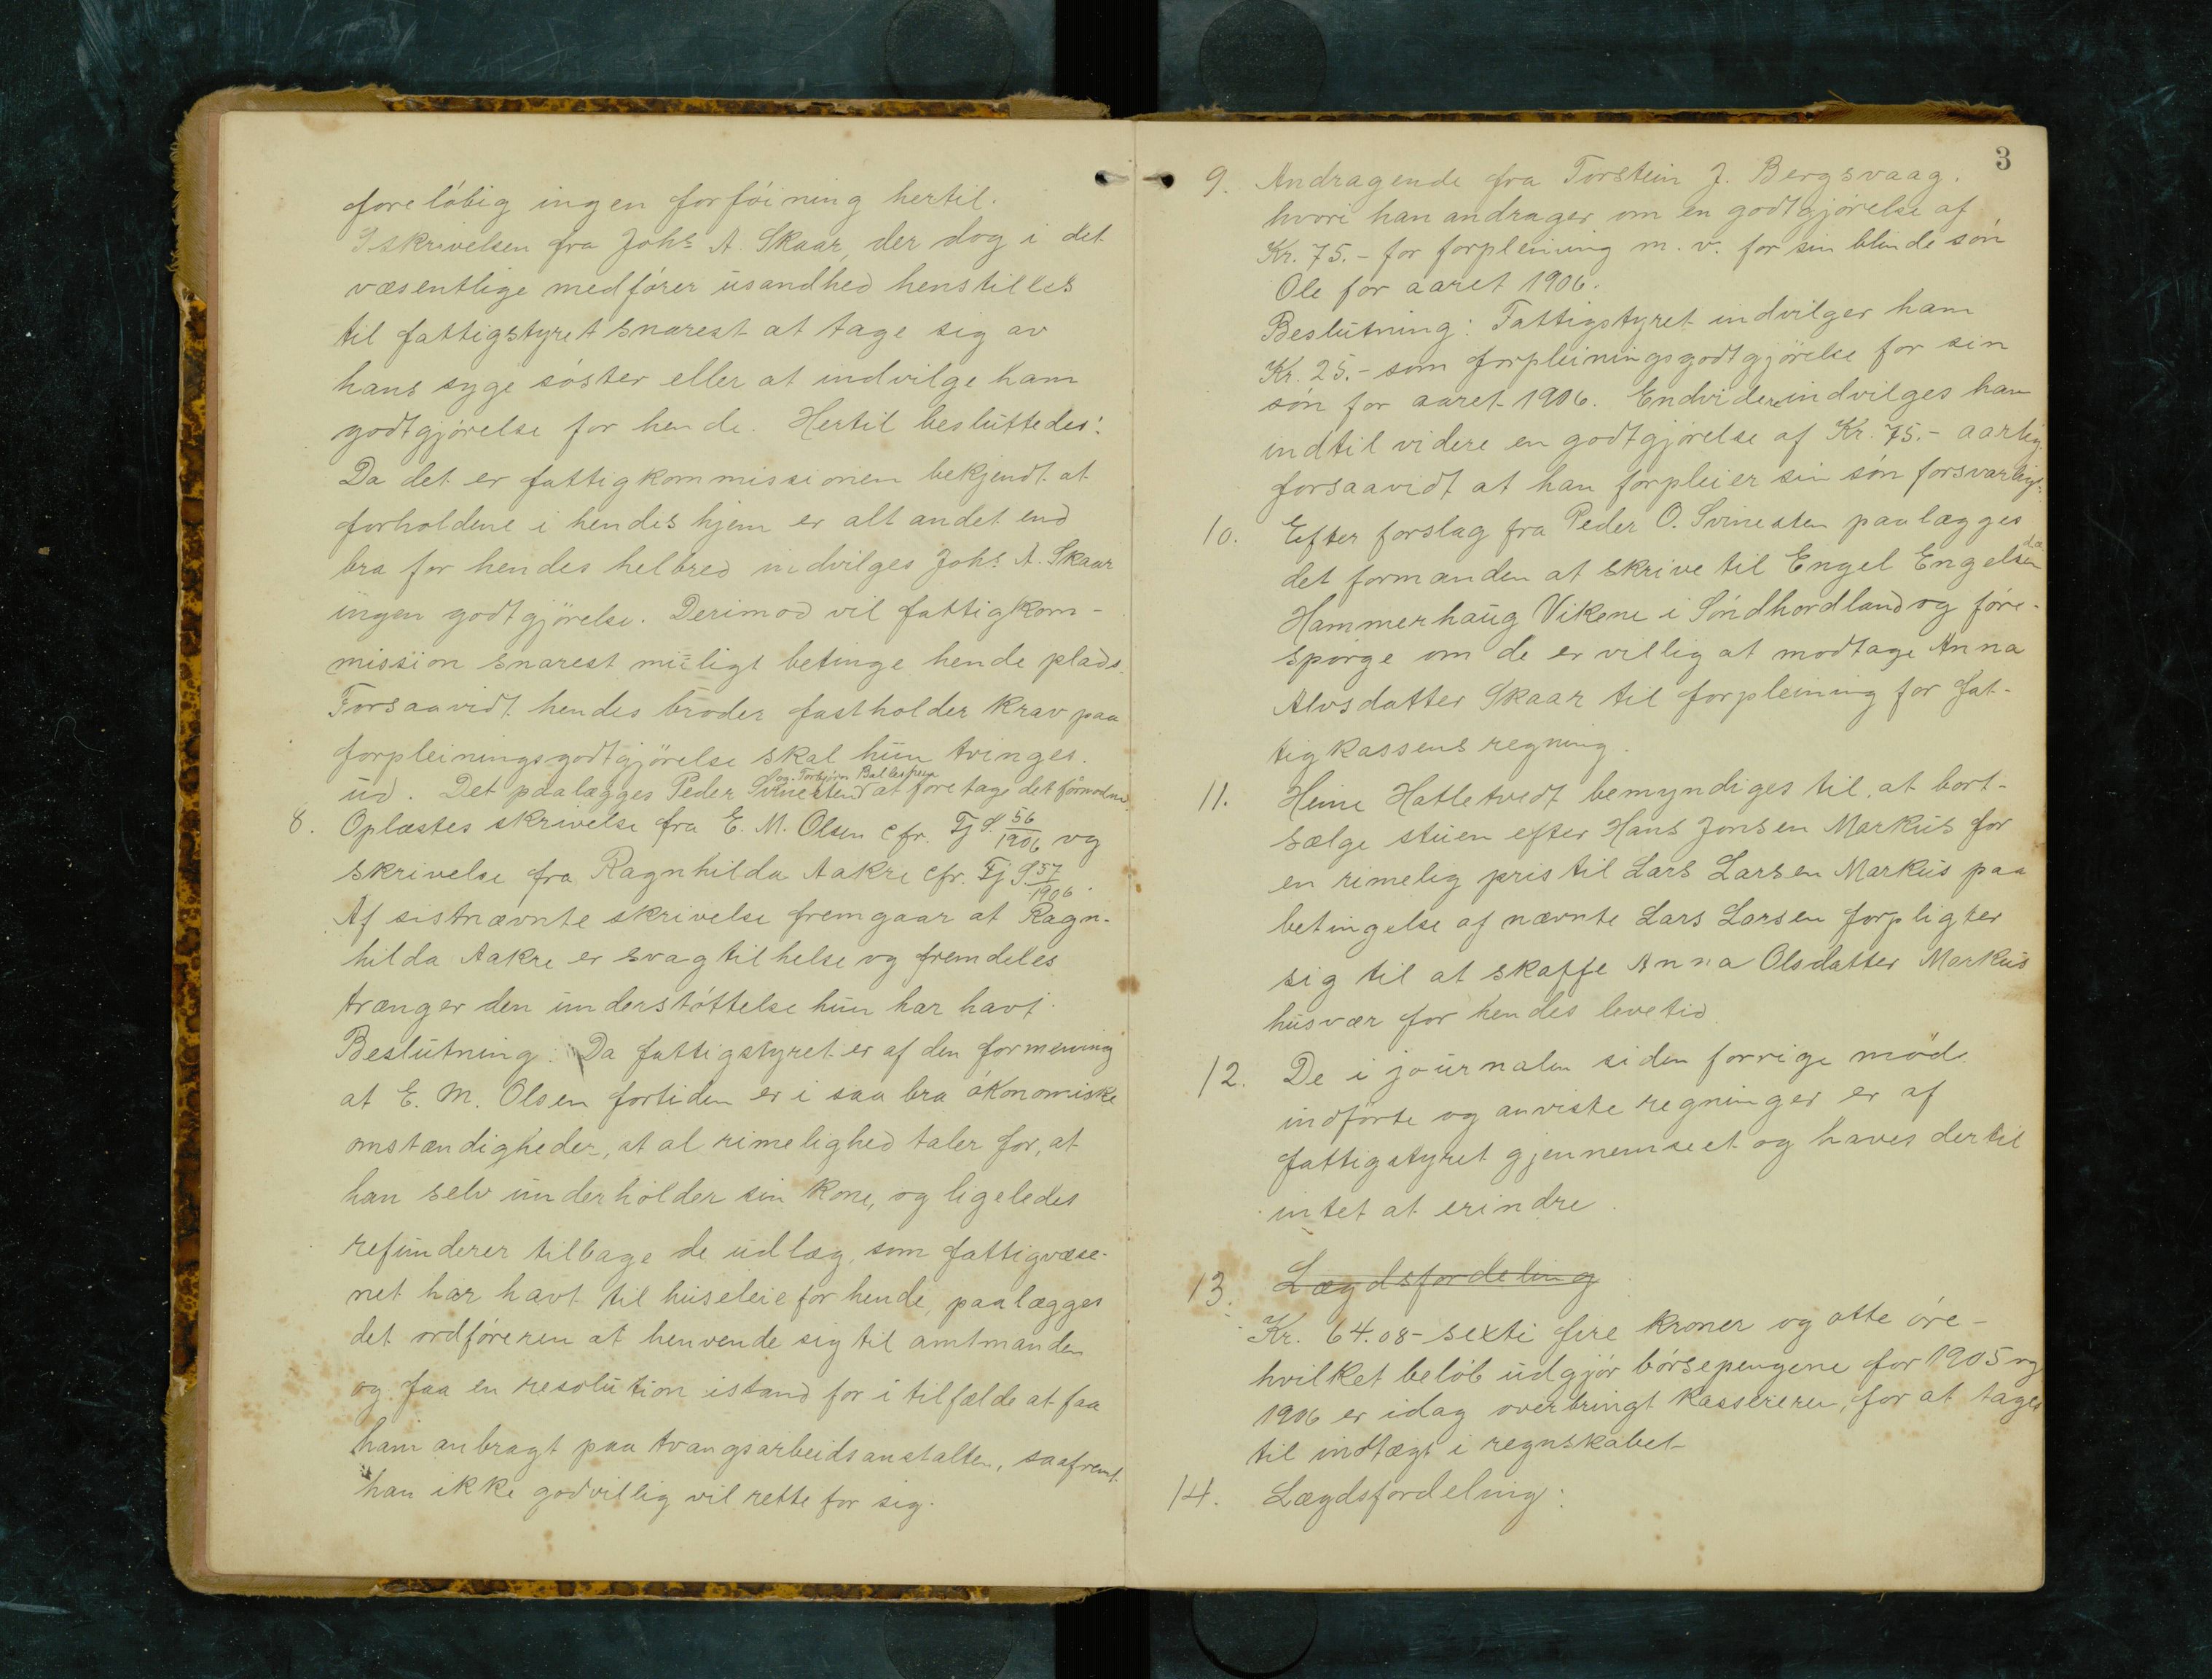 foreløbig ingen forføining hertil.
I skrivelsen fra Johs A. Skaar, der dog i det
væsentlige medfører usandhed henstilles
til fattigstyret snarest at tage sig av
hans syge søster eller at indvilge ham
godtgjørelse for hende. Hertil besluttedes:
Da det er fattigkommissionen bekjendt at
forholdene i hendes hjem er alt andet end
bra for hendes helbred indvilges Johs A. Skaar
ingen godtgjørelse. Derimod vil fattigkom-
mission snarest muligt betinge hende plads.
Forsaavidt hendes broder fastholder krav paa
forpleiningsgodtgjørelse skal hun tvinges
og Torbjørn
ud. Det paalægges Peder Svinesten at foretage det fornødne
8. Oplæstes skrivelse fra E. M. Olsen cfr. Fj S. 56/1906 og
skrivelse fra Ragnhilda Aakre cfr. Fj S 57/1906.
Af sistnævnte skrivelse fremgaar at Ragn-
hilda Aakre er svag til helse og fremdeles
trænger den understøttelse hun har havt.
Beslutning: Da fattigstyret er af den formening
at E. M. Olsen fortiden er i saa bra økonomiske
omstændigheder, at al rimelighed taler for, at
han selv underholder sin kone, og ligeledes
refunderer tilbage de udlæg, som fattigvæse-
net har havt til huseleie for hende, paalægges
det ordføreren at henvende sig til amtmanden
og faa en resolution istand for i tilfælde at faa
ham anbragt paa tvangsarbeidsanstalten, saafremt
han ikke godvillig vil rette for sig.
3
9. Andragende fra Torstein J. Bergsvaag.
hvori han andrager om en godtgjørelse af
Kr. 75.- for forpleining m. v. for sin blinde søn
Ole for aaret 1906.
Beslutning: Fattigstyret indvilger ham
Kr. 25.- som forpleiningsgodtgjørelse for sin
søn for aaret 1906. Endvidere indvilges han
indtil videre en godtgjørelse af Kr. 75.- aarlig
forsaavidt at han forpleier sin søn forsvarligt.
10. Efter forslag fra Peder O. Svinesten paalægges
det formanden at skrive til Engel Engelsen
Hammerhaug Vikene i Søndhordland og føre-
spørge om de er villig at modtage Anna
Alvsdatter Skaar til forpleining for fat-
tigkassens regning.
11. Heine Hatletvedt bemyndiges til at bort-
sælge stuen efter Hans Jonsen Markus for
en rimelig pris til Lars Larsen Markus paa
betingelse af nævnte Lars Larsen forpligter
sig til at skaffe Anna Olsdatter Markus
husvær for hendes levetid.
12. De i journalen siden forrige møde
indførte og anviste regninger er af
fattigstyret gjennemseet og haves dertil
intet at erindre.
13. Lægdsfordeling
Kr. 64.08 - sexti fire kroner og otte øre -
hvilket beløb udgjør børsepengene for 1905 og
1906 er idag overbringt kassereren, for at tages
til indtægt i regnskabet
14. Lægdsfordeling: